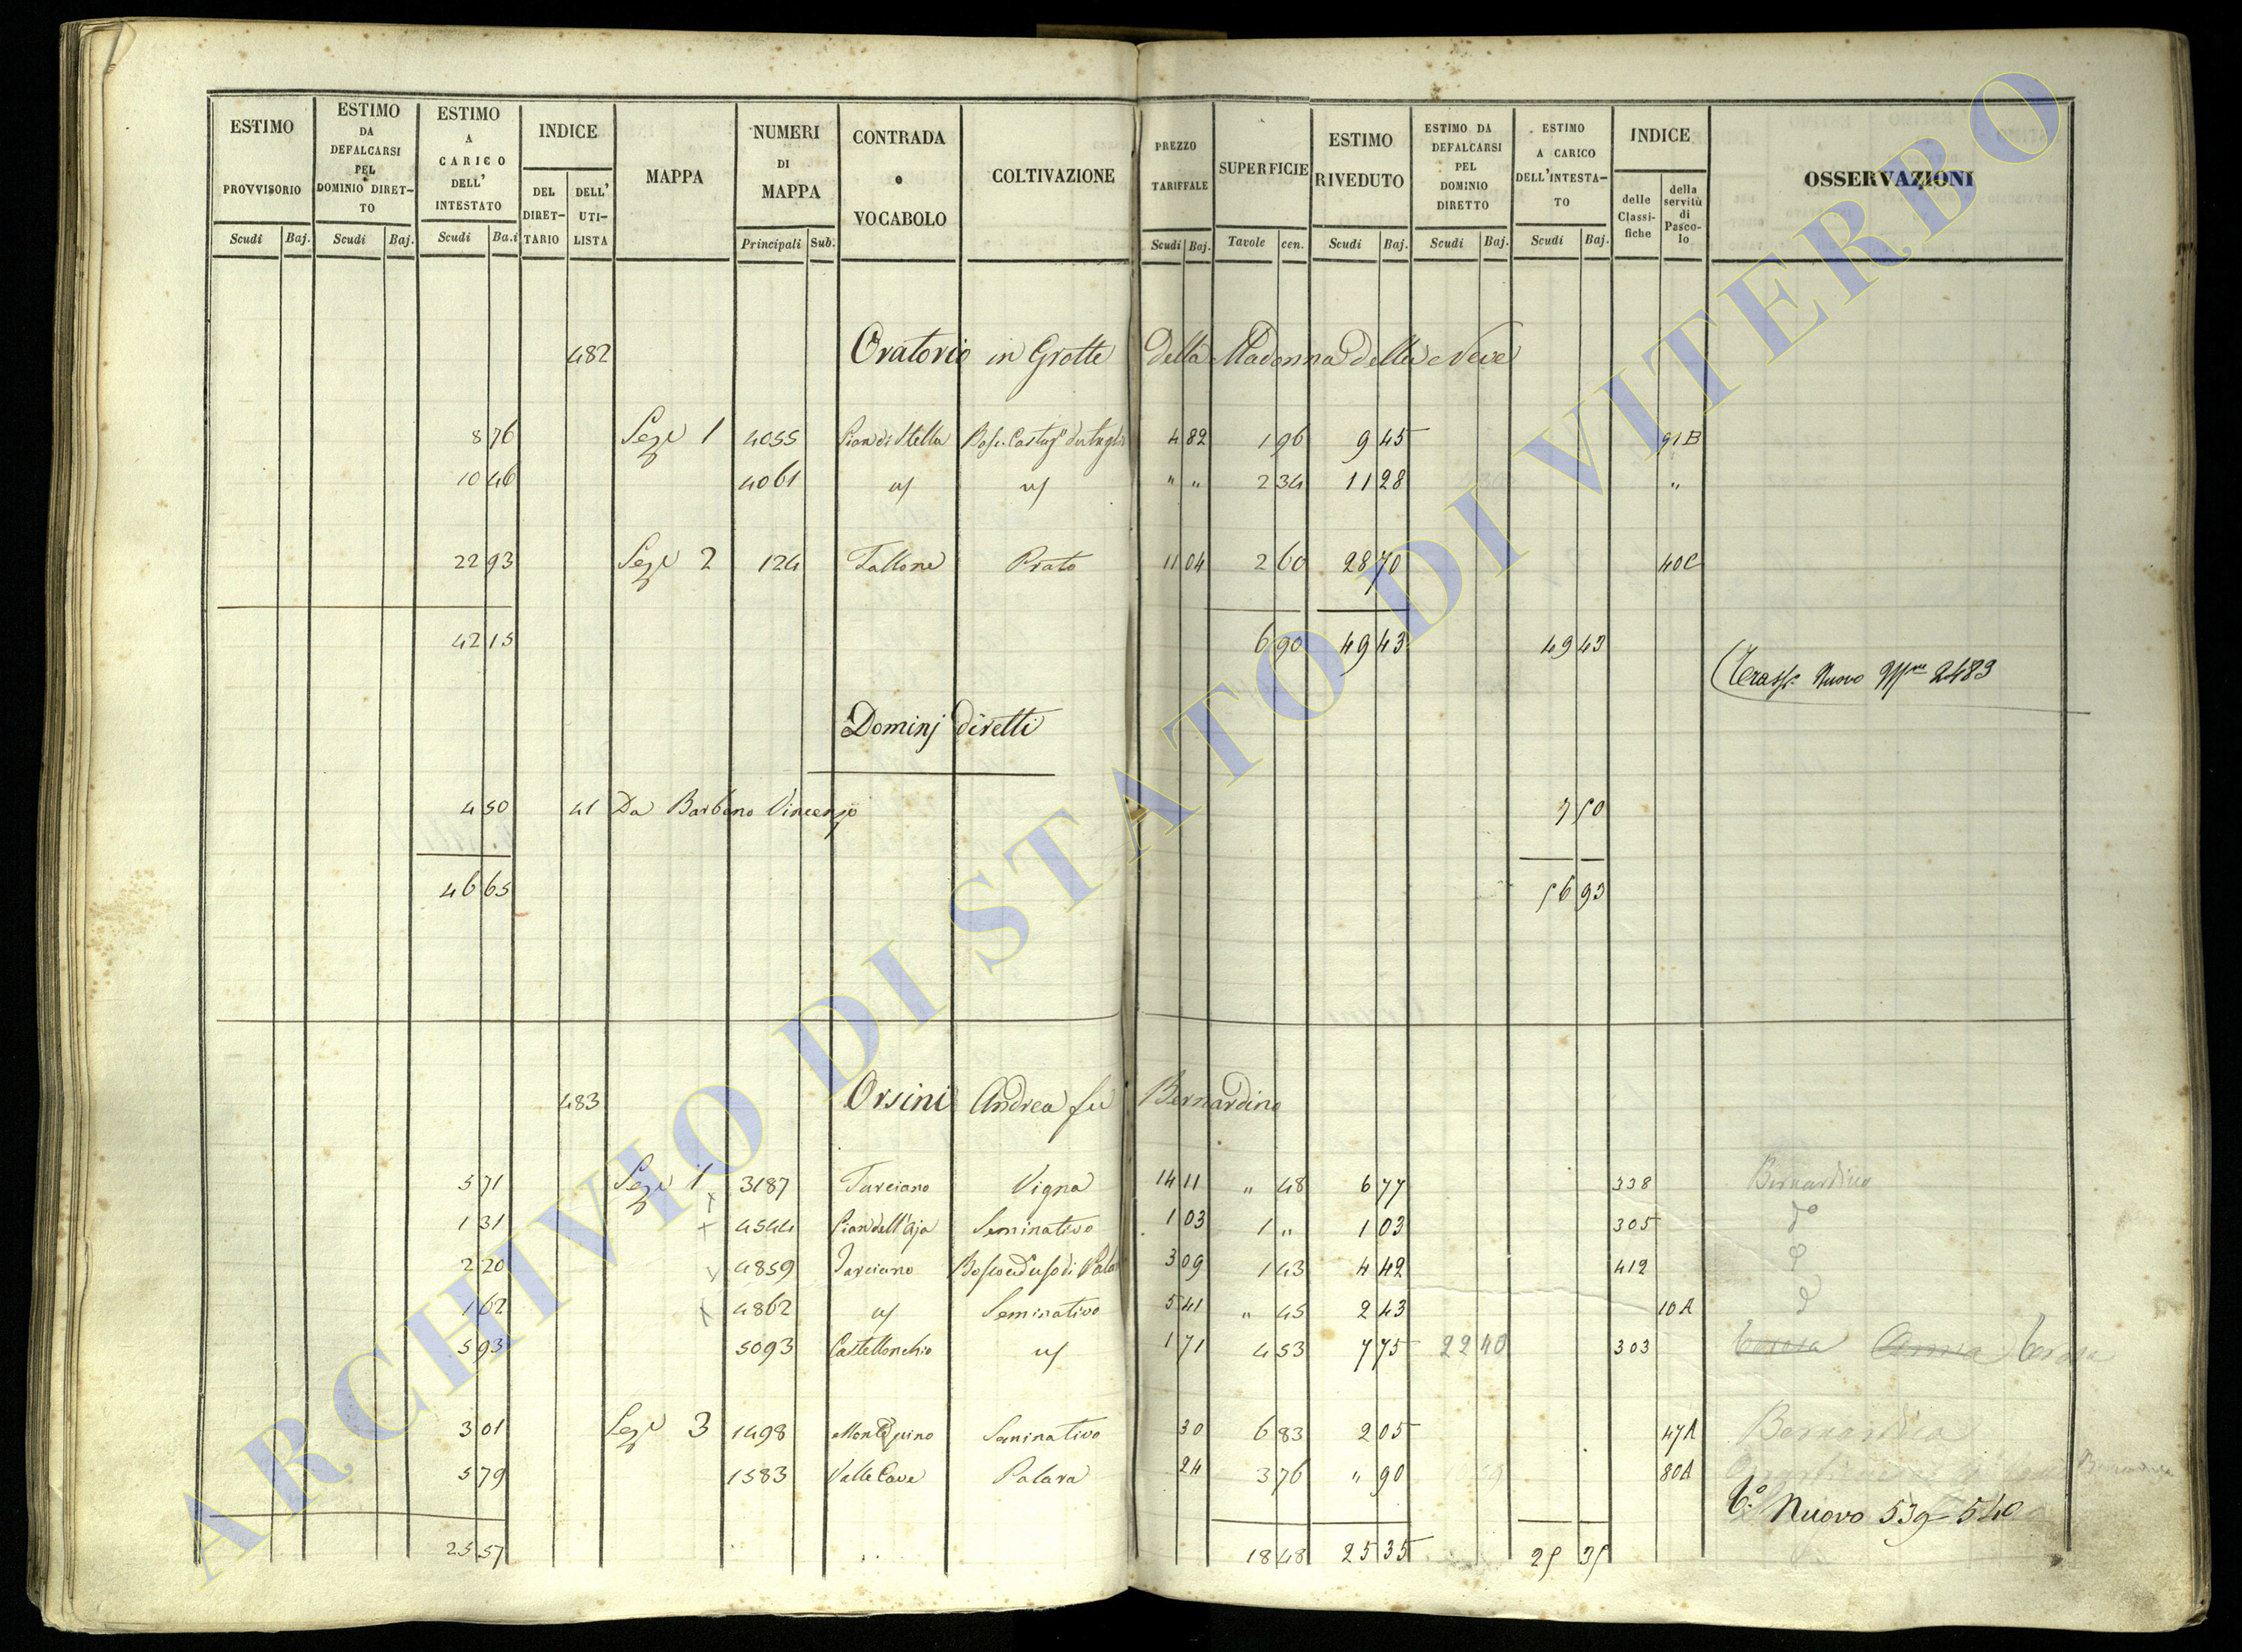 ESTIMO PROVVISORIO Scudi Baj. ESTIMO DA DEFALCARSI PEL DOMINIO DIRET-TO Scudi Baj. ESTIMO A CARICO DELL' INTESTATO Scudi Ba.i INDICE DEL DIRET-TARIO DELL' UTI-LISTA MAPPA NUMERI DI MAPPA Principali Sub. CONTRADA o VOCABOLO COLTIVAZIONE PREZZO TARIFFALE Scudi Baj. SUPERFICIE Tavole cen. ESTIMO RIVEDUTO Scudi Baj. ESTIMO DA DEFALCARSI PEL DOMINIO DIRETTO Scudi Baj. ESTIMO A CARICO DELL'INTESTA-TO Scudi Baj. INDICE delle Classi-fiche della servitù di Pasco-lo OSSERVAZIONI
482 Oratorio in Grotte della Madonna della Neve
8 76 Sez.e 1 4055 Pian di Stella Bosc. Castag.o 4 82 1 96 9 45 91B
10 46 4061 " " 2 34 11 28 "
22 93 Sez.e 2 124 Fallone Prato 11 04 2 60 28 70 40C
42 15 6 90 49 43 49 43
Nuovo 2483
Dominj diretti
4 50 41 Da Barbano Vincenzo 7 50
46 65 56 93
483 Orsini Andrea fu Bernardino
5 71 Sez.e 1 3187 Turciano Vigna 14 11 " 48 6 77 338 Bernardino
1 31 4544 Pian dell'Aja Seminativo 1 03 1 " 1 03 305 do
2 20 4859 Turciano 3 09 1 43 4 42 412
1 62 4862 Seminativo 5 41 " 45 2 43 10A
5 93 5093 Castellonchio 1 71 4 53 7 75 22 40 303 Teresa Anna Teresa
3 01 Sez.e 3 1498 Seminativo 30 6 83 2 05 47A
5 79 1583 Valle Cave Palara 24 3 76 " 90 80A
Nuovo 539-540
25 57 18 48 25 35 25 35
ARCHIVIO DI STATO DI VITERBO